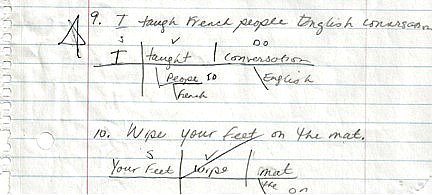 9. I taugh French people English conversation
S V DO
I taught conversation
People IO English
French
10. Wipe your feet on the mat.
S V
Your Feet wipe mat
the on